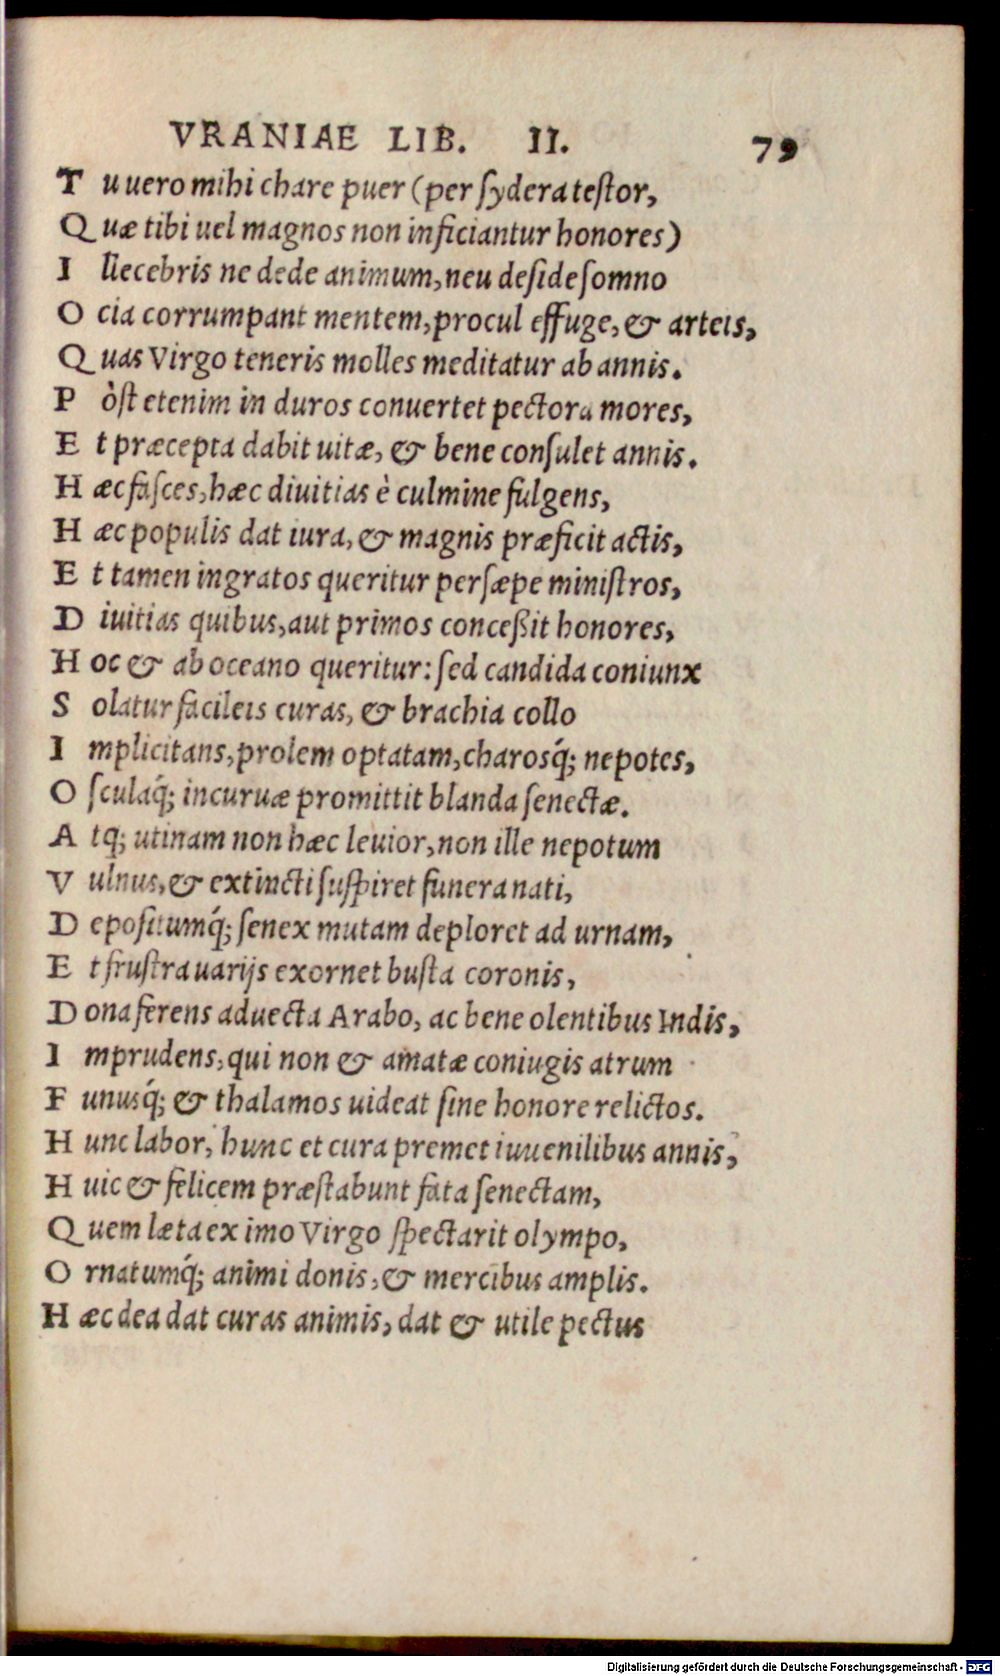 VRANIAE LIB. II. 79
T u uero mihi chare puer (per ſydera teſtor,
Q uæ tibi uel magnos non inficiantur honores)
I llecebris ne dede animum, neu deſide ſomno
O cia corrumpant mentem, procul effuge, & arteis,
Q uas Virgo teneris molles meditatur ab annis.
P òſt etenim in duros conuertet pectora mores,
E t præcepta dabit uitæ, & bene conſulet annis.
H æc faſces, hæc diuitias è culmine fulgens,
H æc populis dat iura, & magnis præficit actis,
E t tamen ingratos queritur perſæpe miniſtros,
D iuitias quibus, aut primos conceßit honores,
H oc & ab oceano queritur: ſed candida coniunx
S olatur facileis curas, & brachia collo
I mplicitans, prolem optatam, charosq́; nepotes,
O ſculaq́; incuruæ promittit blanda ſenectæ.
A tq; utinam non hæc leuior, non ille nepotum
V ulnus, & extincti ſuſpiret funera nati,
D epoſitumq́; ſenex mutam deploret ad urnam,
E t fruſtra uarijs exornet buſta coronis,
D ona ferens aduecta Arabo, ac bene olentibus Indis,
I mprudens, qui non & amatæ coniugis atrum
F unusq́; & thalamos uideat ſine honore relictos.
H unc labor, hunc et cura premet iuuenilibus annis,
H uic & felicem præſtabunt fata ſenectam,
Q uem læta ex imo Virgo ſpectarit olympo,
O rnatumq́; animi donis, & mercibus amplis.
H æc dea dat curas animis, dat & utile pectus
Digitalisierung gefördert durch die Deutsche Forschungsgemeinschaft - DFG